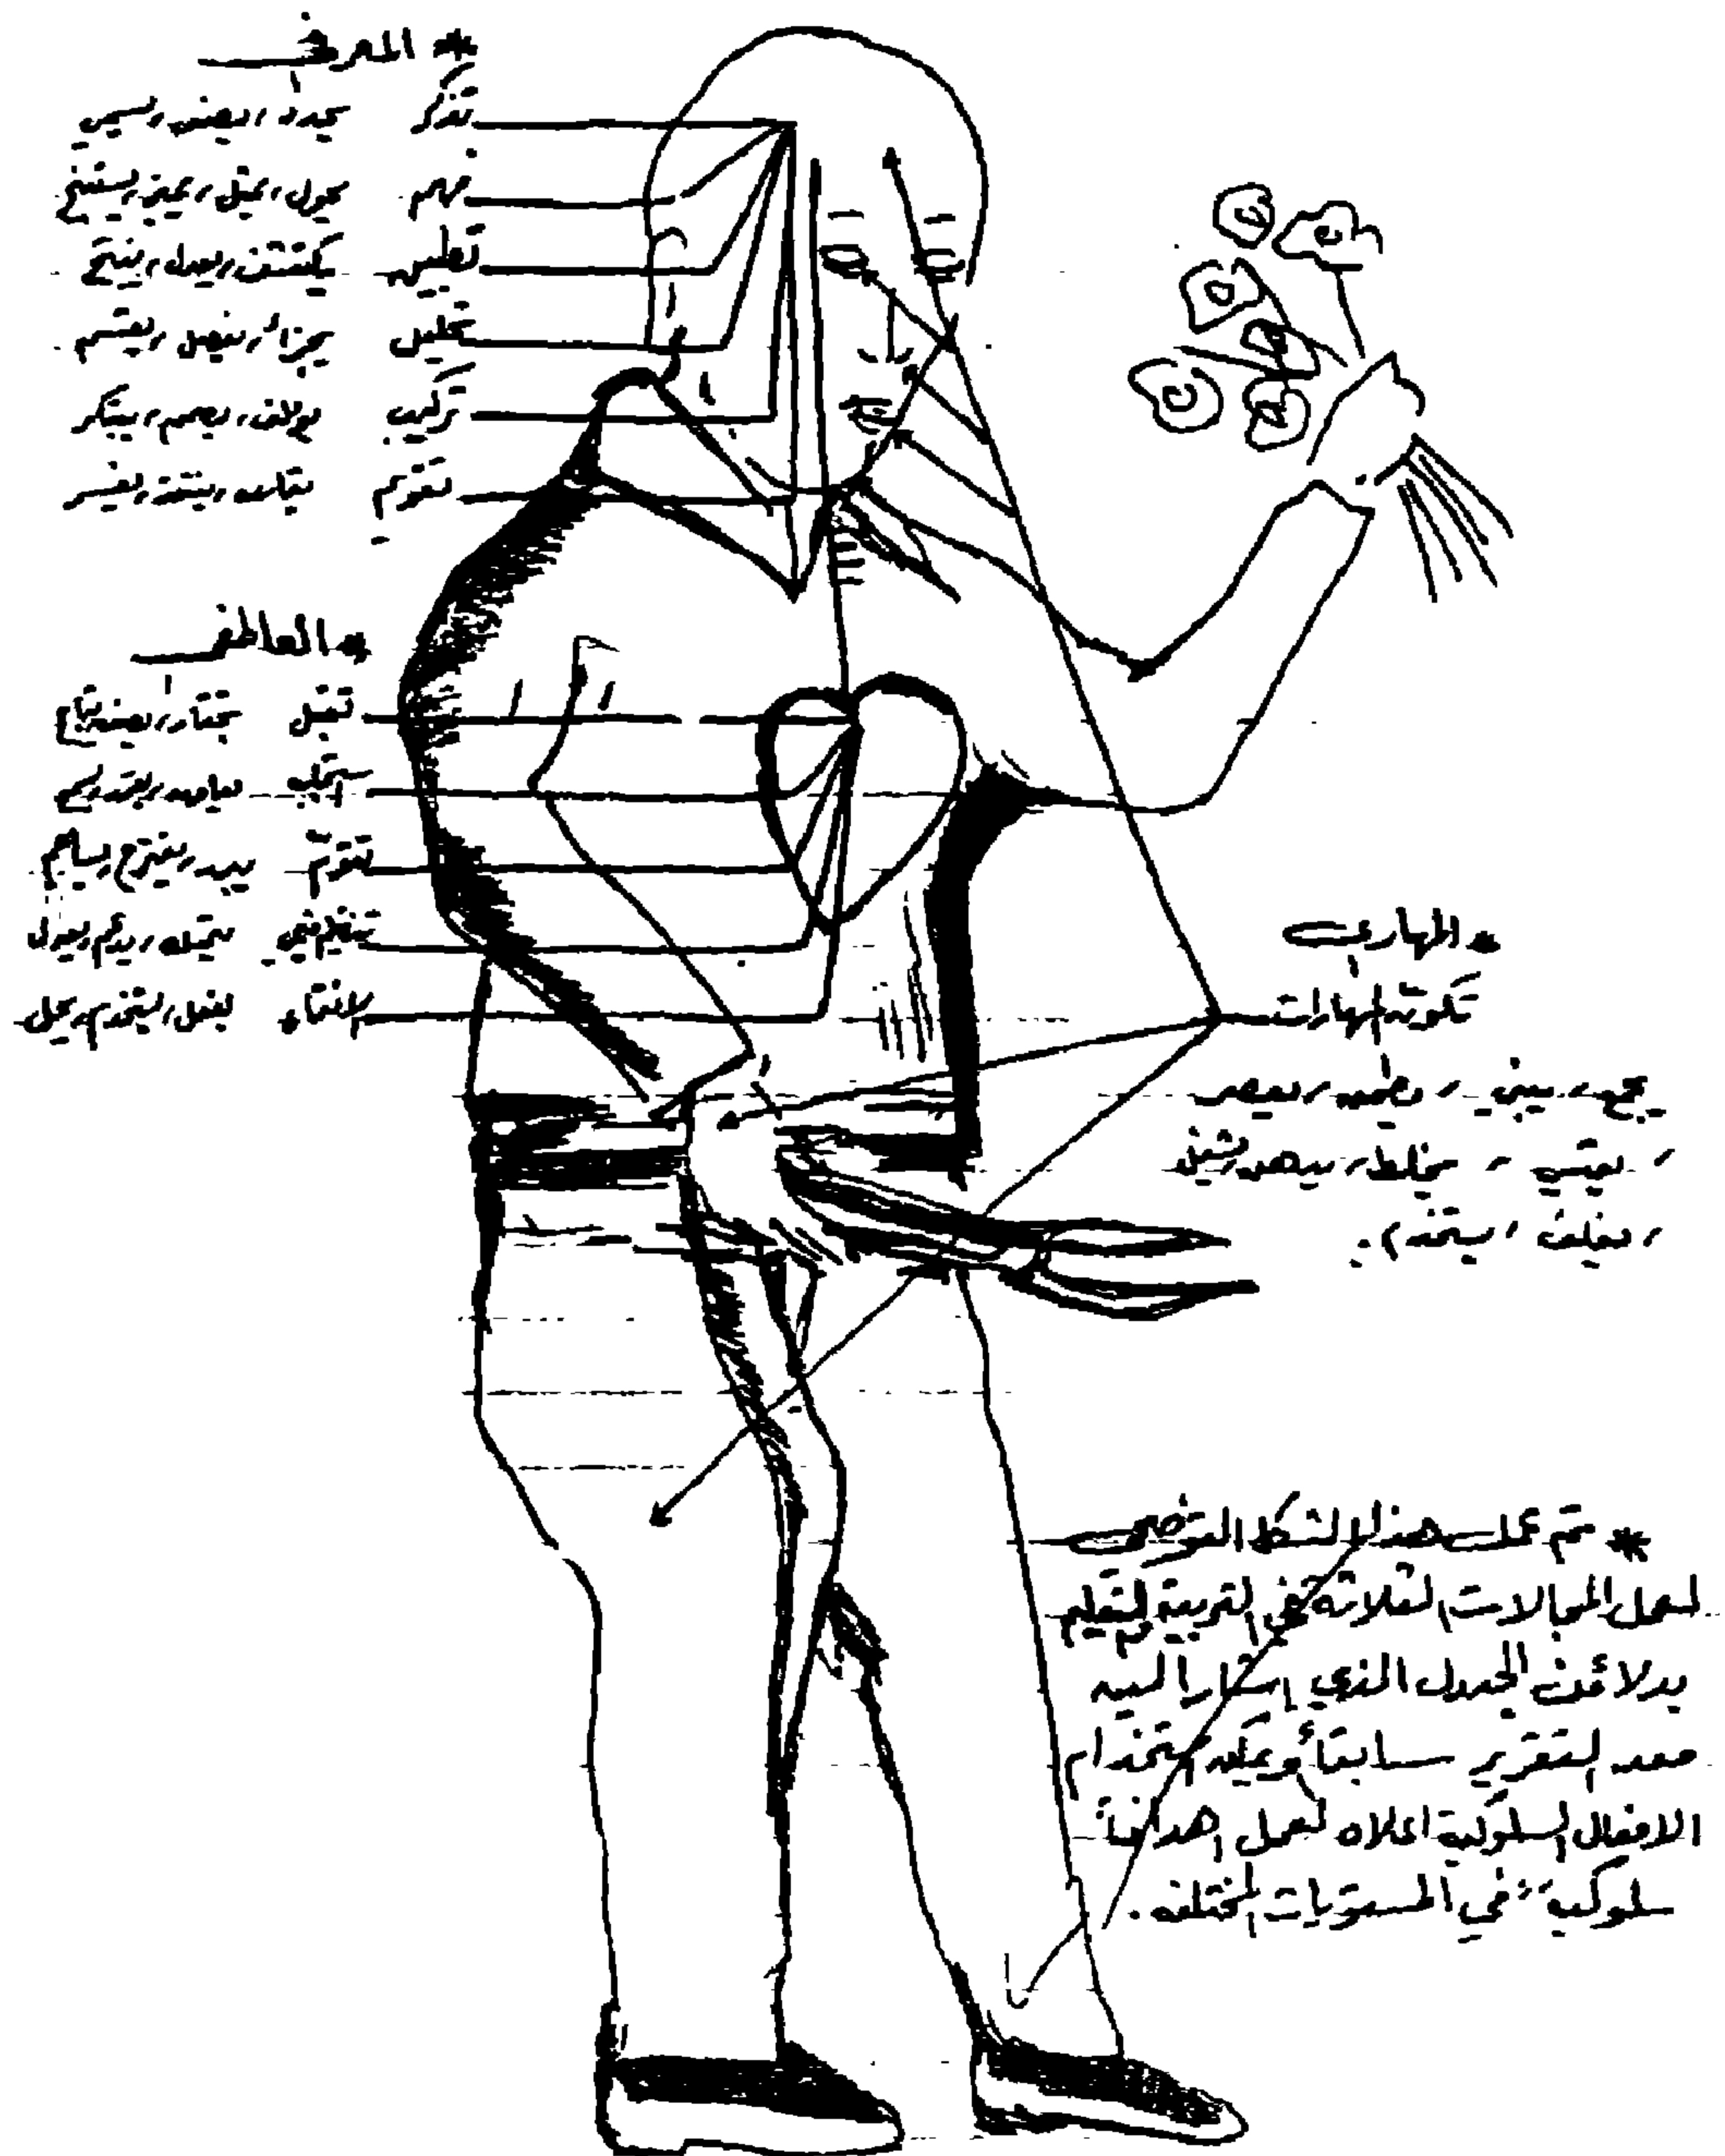 * المعرفي
تذكر يحدد، يصف، يسمي
فهم يحول، يمثل، يميز، يستنتج
تطبيق يكتشف، يعدل، ينتج
تحليل يجزأ، يفصل، يقسم
تركيب يؤلف، يصمم، يبتكر
تقويم يقارن، ينتقد، يفسر
* العاطفي
تقبل يختار، يصف، يتابع
استجابة
تقويم يقترح، يساهم
تنظيم قيمي
الانتماء يفعل، يستخدم، يحل
* المهاري
تكوين المهارات
يجمع، يبني،
، يخلط،
، يغلف، يستخدم.
* تم عمل هذا الشكل التوضيحي
لعمل المجالات الثلاثة في التربية والتعليم
بدلا عن الجدول الذي اشار اليه
معد التقرير سابقاً ويمكن استخدام
الافعال السلوكية اعلاه لعمل اهدافاً
سلوكية في المستويات المختلفه.